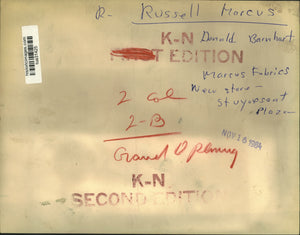 R- Russell Marcus
K-N
EDITION
Donald Barnhart
Marcus Fabrics
New store -
Stuyvesant
Plaza
2 Col
2-B
Grand Opening
NOV 16 1984
K-N
SECOND EDITION